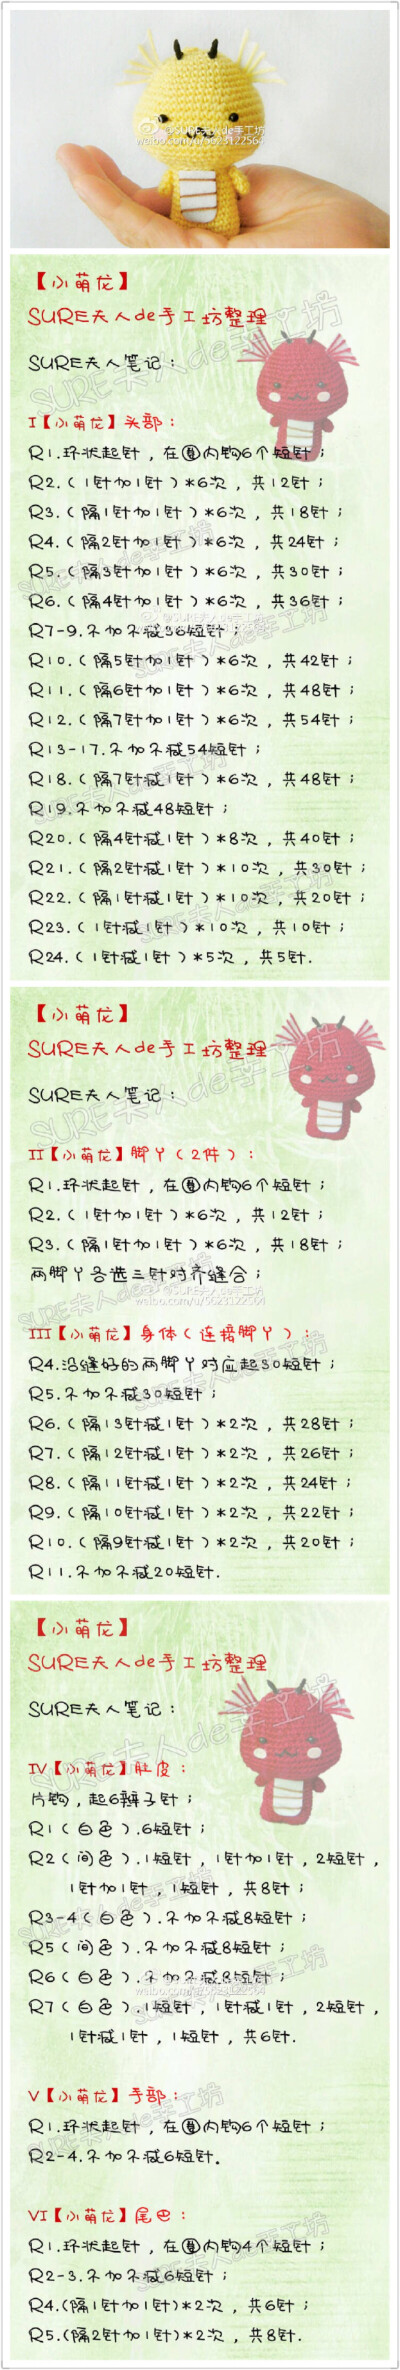 @SURE夫人de手工坊
weibo.com/u/5623122564
【小萌龙】
SURE夫人de手工坊整理
SURE夫人笔记：
I【小萌龙】头部：
R1.环状起针，在圈内钩6个短针；
R2.（1针加1针）*6次，共12针；
R3.（隔1针加1针）*6次，共18针；
R4.（隔2针加1针）*6次，共24针；
R5.（隔3针加1针）*6次，共30针；
R6.（隔4针加1针）*6次，共36针；
R7-9.不加不减36短针；
R10.（隔5针加1针）*6次，共42针；
R11.（隔6针加1针）*6次，共48针；
R12.（隔7针加1针）*6次，共54针；
R13-17.不加不减54短针；
R18.（隔7针减1针）*6次，共48针；
R19.不加不减48短针；
R20.（隔4针减1针）*8次，共40针；
R21.（隔2针减1针）*10次，共30针；
R22.（隔1针减1针）*10次，共20针；
R23.（1针减1针）*10次，共10针；
R24.（1针减1针）*5次，共5针.
【小萌龙】
SURE夫人de手工坊整理
SURE夫人笔记：
II【小萌龙】脚丫（2件）：
R1.环状起针，在圈内钩6个短针；
R2.（1针加1针）*6次，共12针；
R3.（隔1针加1针）*6次，共18针；
两脚丫各选三针对齐缝合；
weibo.com/u/5623122564
III【小萌龙】身体（连接脚丫）：
R4.沿缝好的两脚丫对应起30短针；
R5.不加不减30短针；
R6.（隔13针减1针）*2次，共28针；
R7.（隔12针减1针）*2次，共26针；
R8.（隔11针减1针）*2次，共24针；
R9.（隔10针减1针）*2次，共22针；
R10.（隔9针减1针）*2次，共20针；
R11.不加不减20短针.
【小萌龙】
SURE夫人de手工坊整理
SURE夫人笔记：
IV【小萌龙】肚皮：
片钩，起6辫子针；
R1（白色）.6短针；
R2（间色）.1短针，1针加1针，2短针，
1针加1针，1短针，共8针；
R3-4（白色）.不加不减8短针；
R5（间色）.不加不减8短针；
R6（白色）.不加不减8短针；
weibo.com/u/5623122564
R7（白色）.1短针，1针减1针，2短针，
1针减1针，1短针，共6针.
V【小萌龙】手部：
R1.环状起针，在圈内钩6个短针；
R2-4.不加不减6短针。
VI【小萌龙】尾巴：
R1.环状起针，在圈内钩4个短针；
R2-3.不加不减6短针；
R4.(隔1针加1针)*2次，共6针；
R5.(隔2针加1针)*2次，共8针.